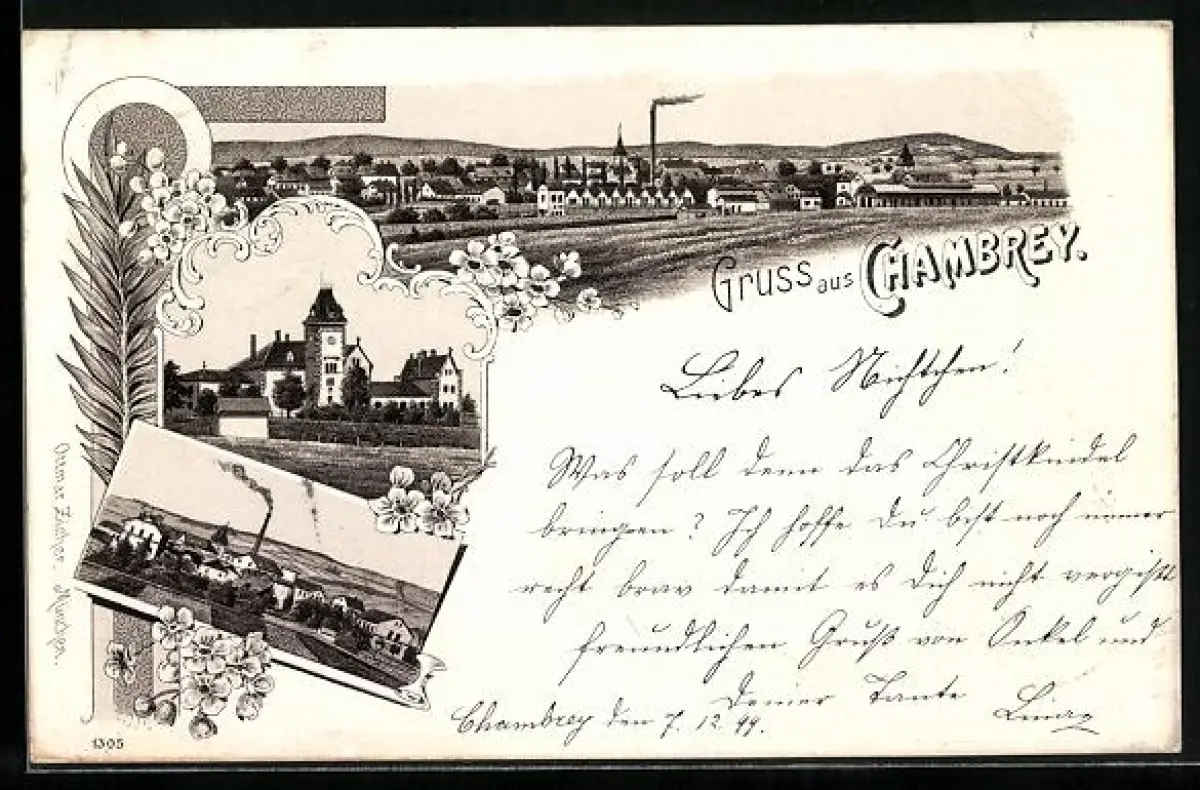 Gruss aus CHAMBREY.
Liebes Nichtchen!
Was soll denn das Christkindel
bringen? Ich hoffe Du bist noch immer
recht brav damit es Dich nicht vergißt
freundlichen Gruß von Onkel und
Deiner Tante
Chambrey den 7.12.99.
Ottmar Zieher. München.
1305